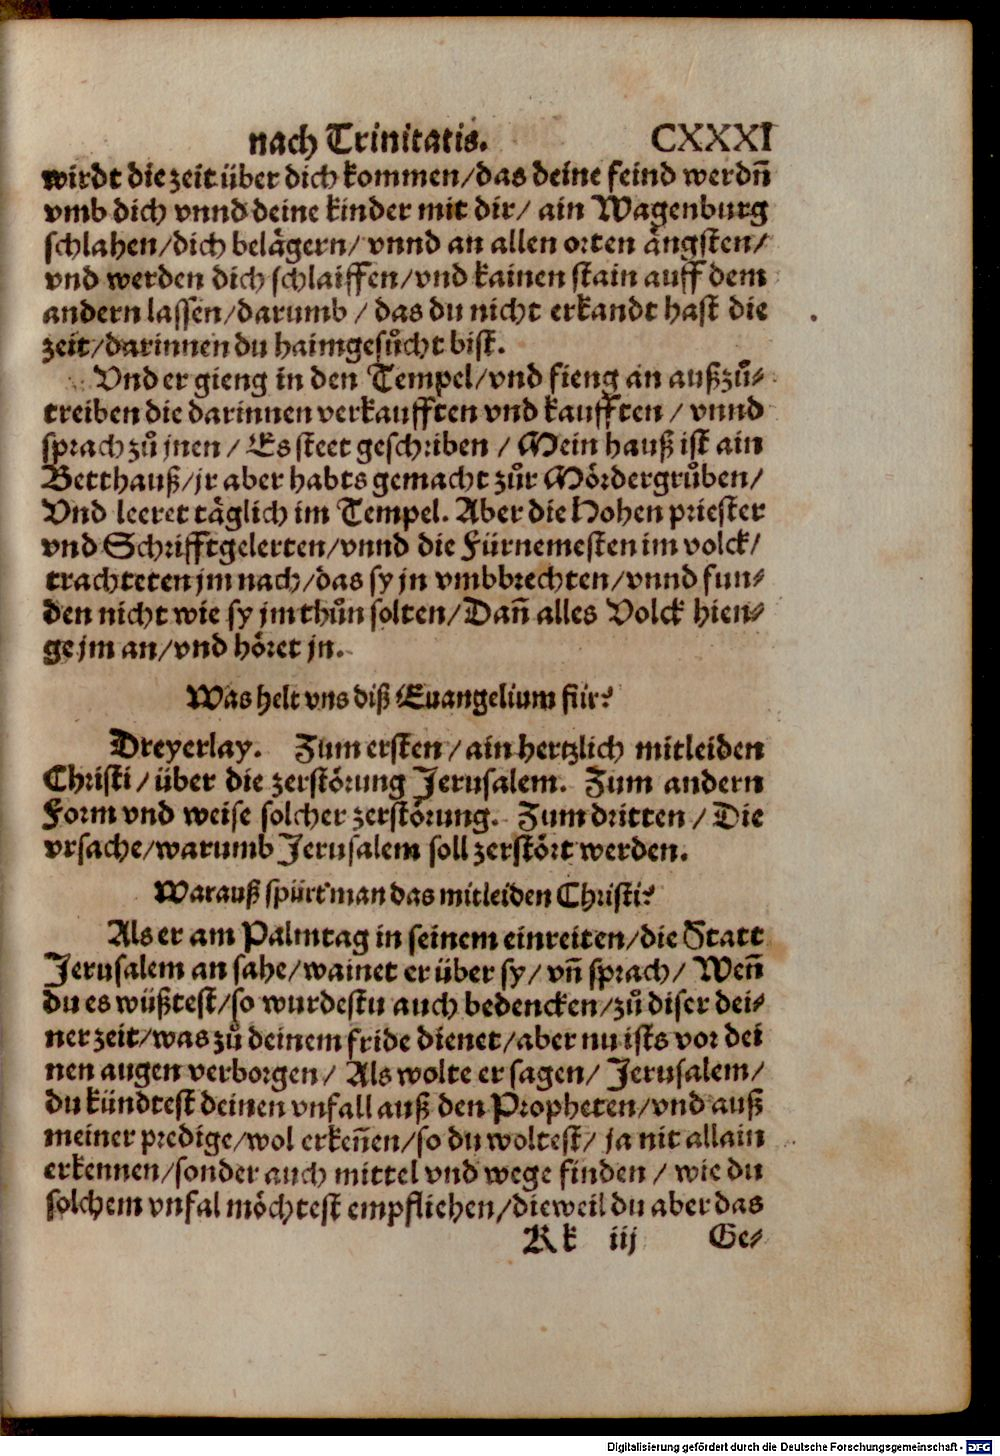 nach Trinitatis. CXXXI
wirdt die zeit über dich kommen/das deine feind werdn̄
vmb dich vnnd deine kinder mit dir/ ain Wagenburg
schlahen/dich belägern/ vnnd an allen orten ängsten/
vnd werden dich schlaiffen/vnd kainen stain auff dem
andern lassen/darumb / das du nicht erkandt hast die
zeit/darinnen du haimgesůcht bist.
Vnd er gieng in den Tempel/vnd fieng an außzů-
treiben die darinnen verkaufften vnd kaufften / vnnd
sprach zů jnen / Es steet geschriben / Mein hauß ist ain
Betthauß/jr aber habts gemacht zůr Mördergrůben/
Vnd leeret täglich im Tempel. Aber die Hohen priester
vnd Schrifftgelerten/vnnd die Fürnemesten im volck/
trachteten jm nach/das sy jn vmbbrechten/vnnd fun-
den nicht wie sy jm thůn solten/Dan̄ alles Volck hien-
ge jm an/vnd höret jn.
Was helt vns diß Euangelium für?
Dreyerlay. Zum ersten/ain hertzlich mitleiden
Christi/über die zerstörung Jerusalem. Zum andern
Form vnd weise solcher zerstörung. Zum dritten/ Die
vrsache/warumb Jerusalem soll zerstört werden.
Warauß spürt man das mitleiden Christi?
Als er am Palmtag in seinem einreiten/die Statt
Jerusalem an sahe/wainet er über sy/ vn̄ sprach/ Wen̄
du es wüßtest/so wurdestu auch bedencken/zů diser dei-
ner zeit/was zů deinem fride dienet/aber nu ists vor dei
nen augen verborgen/ Als wolte er sagen/ Jerusalem/
du kündtest deinen vnfall auß den Propheten/vnd auß
meiner predige/wol erken̄en/so du woltest/ ja nit allain
erkennen/sonder auch mittel vnd wege finden / wie du
solchem vnfal möchtest empfliehen/dieweil du aber das
Kk iij Ge-
Digitalisierung gefördert durch die Deutsche Forschungsgemeinschaft - DFG